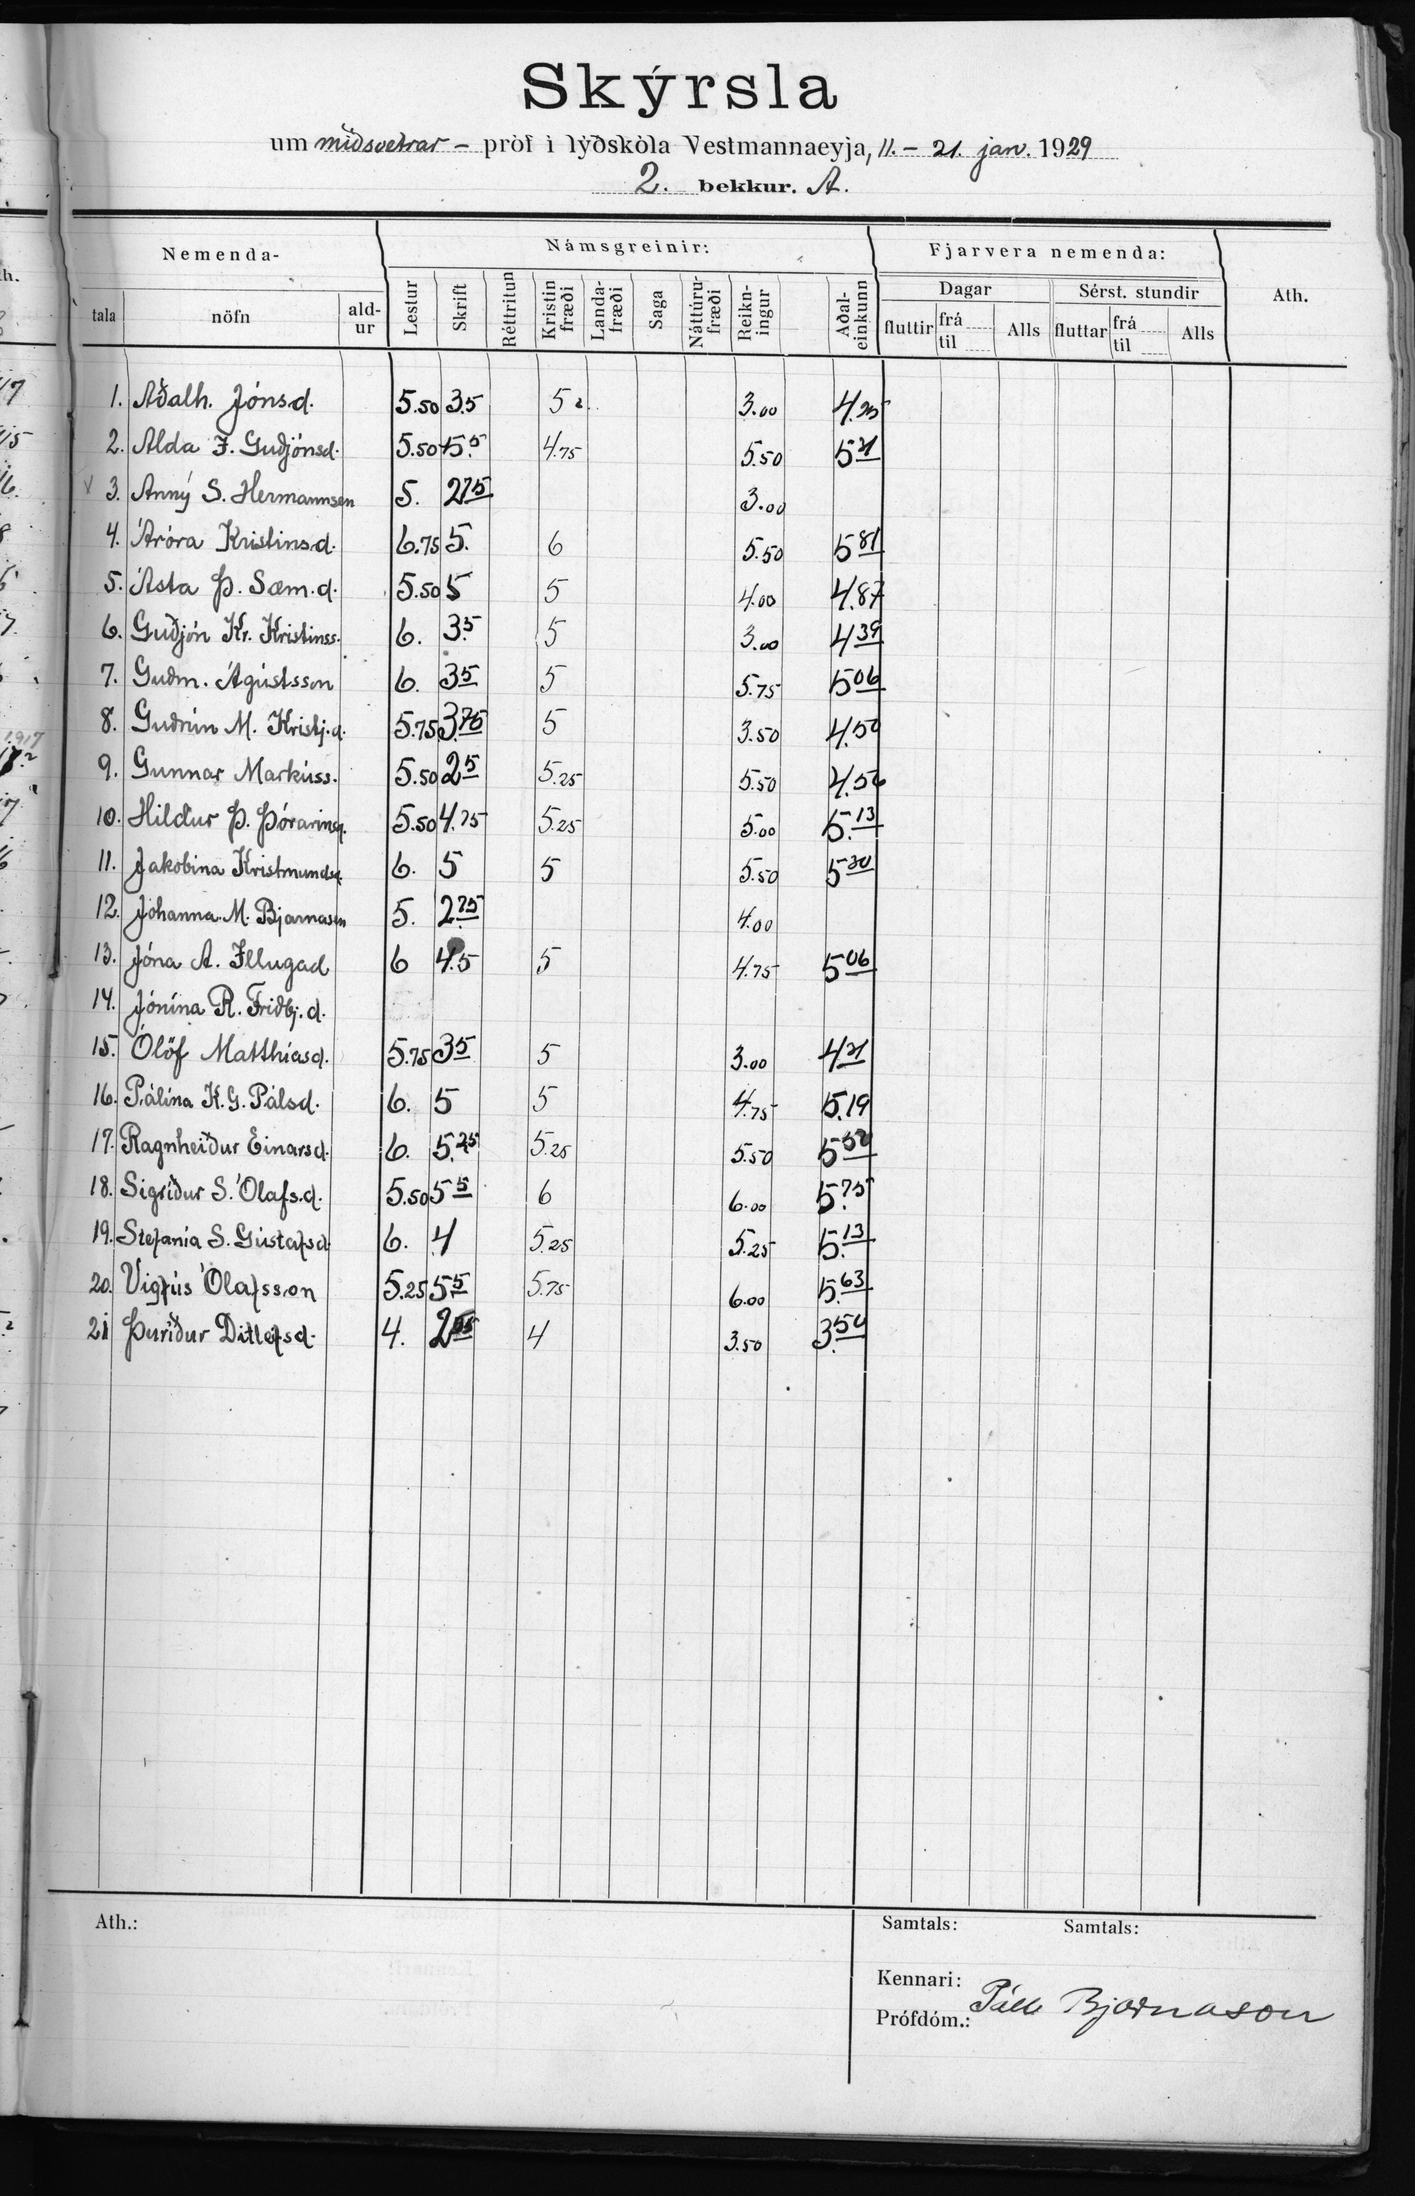 Skýrsla
um miðsvetrar – próf í lýðskóla Vestmannaeyja, 11. – 21. jan. 1929
2. bekkur. A.
Nemenda- Námsgreinir: Fjarvera nemenda: Ath.
tala nöfn ald-ur Lestur Skrift Réttritun Kristin fræði Landa-fræði Saga Náttúru-fræði Reikn-ingur Aðal-einkunn Dagar Sérst. stundir
fluttir frá til Alls fluttar frá til Alls
1. Aðalh. Jónsd. 5.50 3.5 5 3.00 4.25
2. Alda F. Guðjónsd. 5.50 5.5 4.75 5.50 5 31
3. Anný S. Hermannsen 5. 2 75 3.00
4. Áróra Kristinsd. 6.75 5. 6 5.50 5 81
5. Ásta Þ. Sæm.d. 5.50 5 5 4.00 4.87
6. Guðjón Kr. Kristinss. 6. 3.5 5 3.00 4 39
7. Guðm. Ágústsson 6. 3 5 5 5.75 5 06
8. Guðrún M. Kristj.d. 5.75 3.75 5 3.50 4.50
9. Gunnar Markúss. 5.50 2 5 5.25 5.50 4.56
10. Hildur Þ. Þórarinsd. 5.50 4.75 5.25 5.00 5.13
11. Jakobína Kristmundsd. 6. 5 5 5.50
12. Jóhanna M. Bjarnasen 5. 2.75 4.00
13. Jóna A. Illugad 6 4.5 5 4.75 5 06
14. Jónína R. Friðbj.d.
15. Ólöf Matthíasd. 5.75 3 5 5 3.00 4 31
16. Pálína K. G. Pálsd. 6. 5 5 4.75 5.19
17. Ragnheiður Einarsd. 6. 5.25 5.25 5.50 5 50
18. Sigríður S. Ólafs.d. 5.50 5 5 6 6.00 5.75
19. Stefanía S. Gústafsd. 6. 4 5.25 5.25 5.13
20. Vigfús Ólafsson 5.25 5 5 5.75 6.00 5.63
21 Þuríður Ditlefsd. 4. 4 3.50 3.50
Ath.: Samtals: Samtals:
Kennari:
Páll Bjarnason
Prófdóm.: